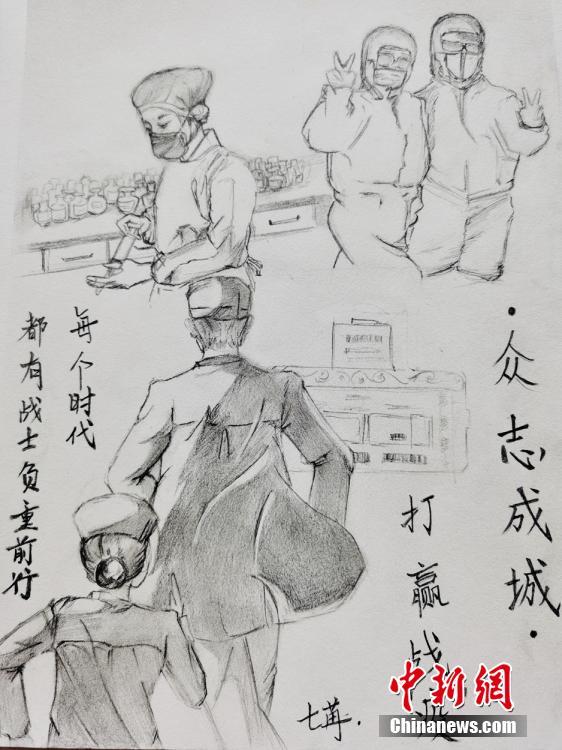 ·众志成城·
打赢战
每个时代
都有战士负重前行
七
中新網
Chinanews.com